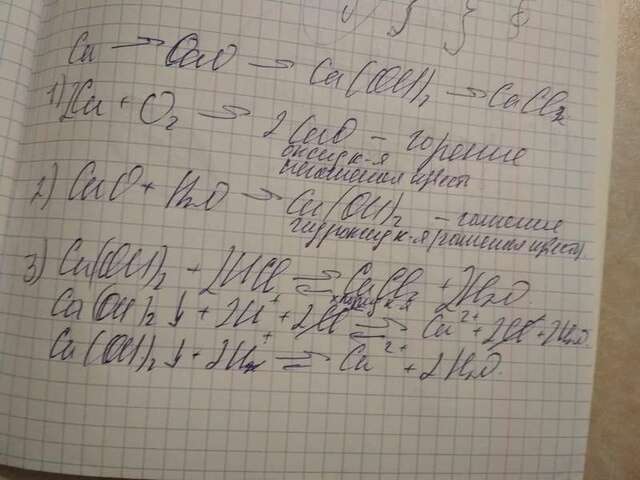 Ca → CaO → Ca(OH)₂ → CaCl₂
1) 2Ca + O₂ → 2CaO – горение
оксид к-я
негашеная известь
2) CaO + H₂O → Ca(OH)₂ – гашение
гидроксид к-я (гашеная известь)
3) Ca(OH)₂ + 2HCl ⇌ CaCl₂ + 2H₂O
хлорид к-я
Ca(OH)₂↓ + 2H⁺ + 2Cl⁻ ⇌ Ca²⁺ + 2Cl⁻ + 2H₂O.
Ca(OH)₂↓ + 2H⁺ ⇌ Ca²⁺ + 2H₂O.